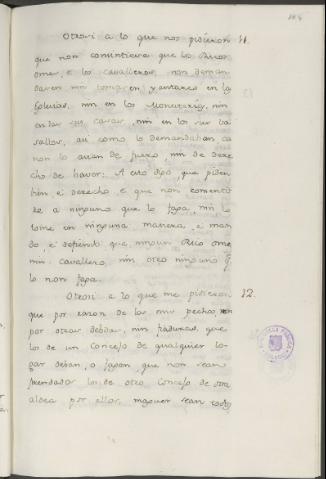 Otrosi a lo que nos pidieron 11.
que non consintiera que los Ricos
omes, e los cavalleros, non deman-
dasen nin tomasen yantares en las
Iglesias, nin en los Monesterios, nin
en las sus casas, nin en los sus va-
sallos, asi como lo demandaban ca
non lo avian de fuero nin de dere-
cho de haver: A esto digo, que piden
bien e derecho, e que non consenti-
re a ninguno que lo faga nin lo
tome en ninguna manera, e man-
do, e defiendo que ningun Rico ome
nin cavallero, nin otro ninguno q
lo non faga.
Otrosi a lo que me pidieron 12.
que por razon de los mis pechos, nin
por otras debdas, nin fiaduras, que
los de un Concejo de qualquier lo-
gar deban, o fagan que non sean
prendados los de otro Concejo de otra
aldea por ellos, maguer sean todos